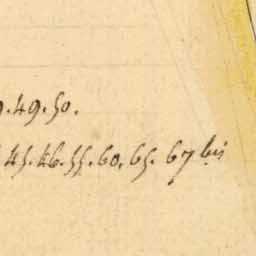 9. 49. 50.
45. 46. 55. 60. 65. 67 bis